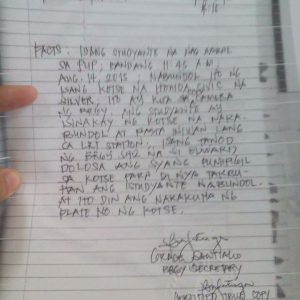 FACTS : ISANG STUDYANTE NA NAG AARAL
SA PUP; BANDANG 11:45 AM
AUG. 14, 2015; NABUNDOL ITO NG
ISANG KOTSE NA HONDA CIVIC NA
SILVER, ITO AY KUHA SA CAMERA
NG BRGY. ANG STUDYANTE AY
ISINAKAY NG KOTSE NA NAKA
BUNDOL AT BASTA INIWAN LANG
SA LRT STATION; ISANG TANOD
NG BRGY SI EDWARD
DOLOSA ANG SYANG PUMIGIL
SA KOTSE PARA DI NYA TAKBU-
HAN ANG ISTUDYANTE NABUNDOL.
AT ITO DIN ANG NAKAKUHA NG
PLATE NO. NG KOTSE.
GRACE SANTIAGO
BRGY SECRETARY
CERTIFIED TRUE COPY